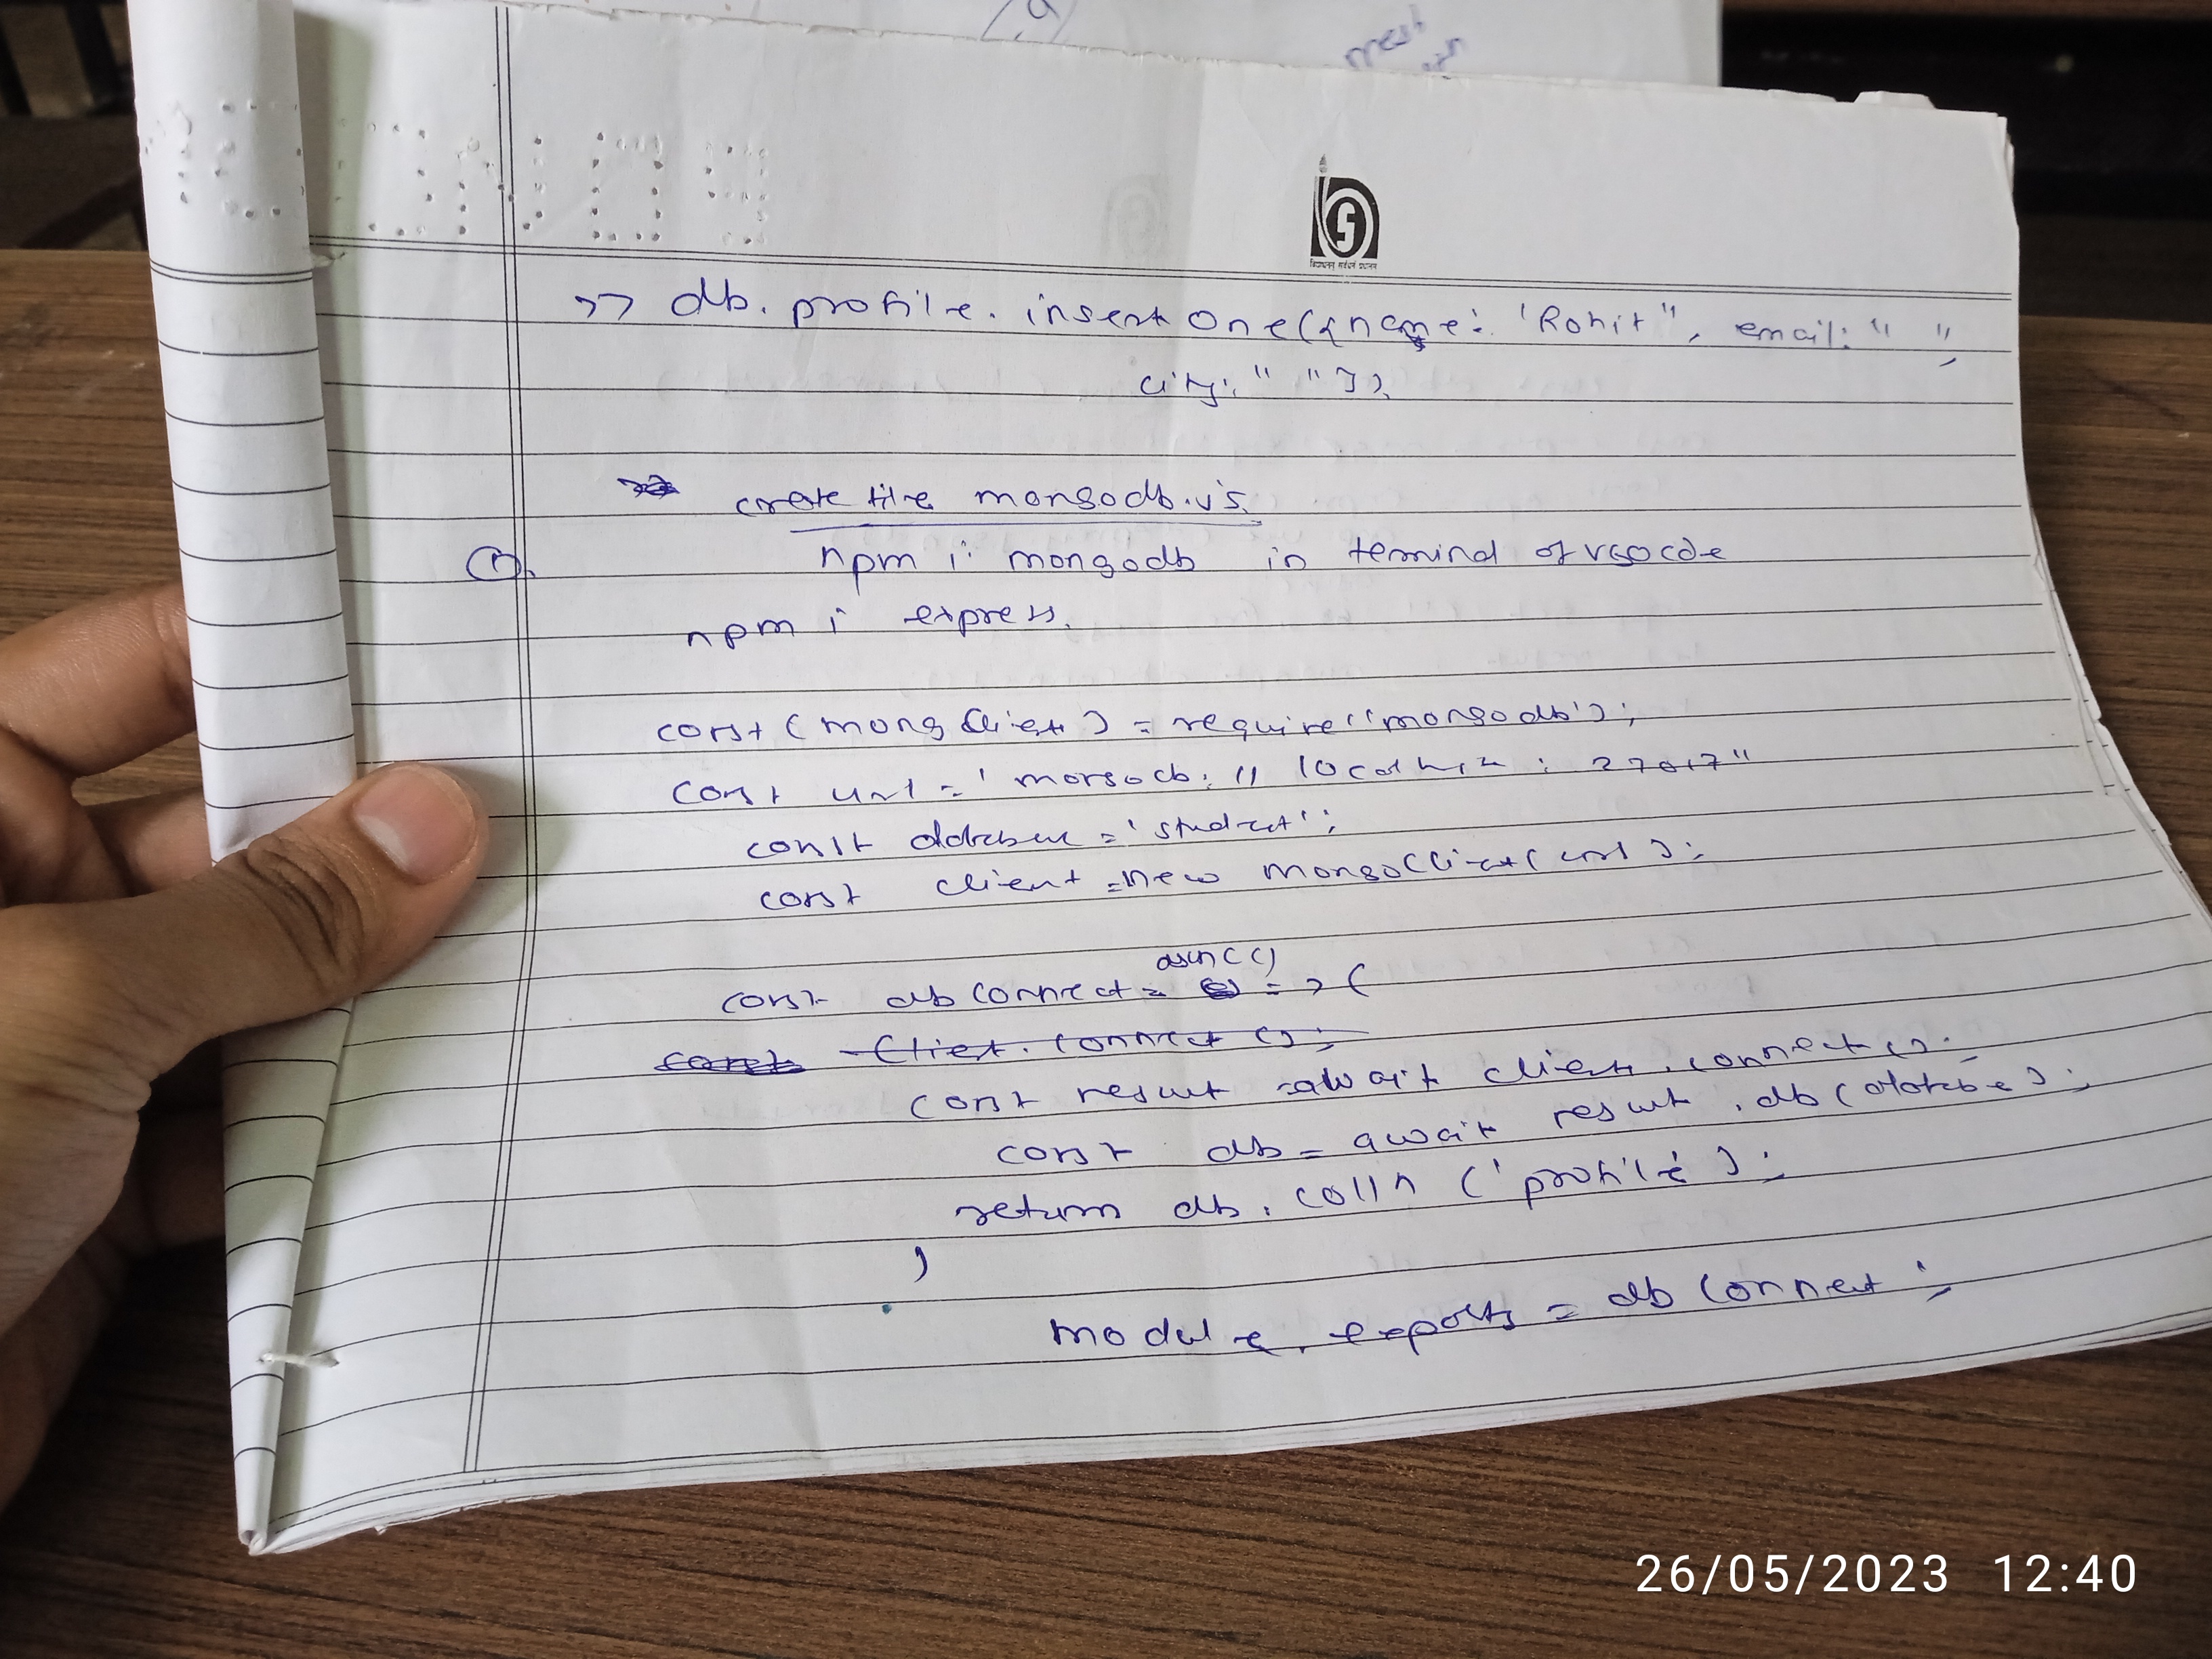 >> db. profile. insertOne({name: 'Rohit", email: " ",
city: " " });
create file mongodb.js.
①. npm i mongodb in terminal of vscode
npm i express.
const (mongClient) = require('mongodb');
const url = 'mongodb: // localhost : 27017"
const database = 'student';
const client = new mongoClient(url);
asyn(()
const dbConnect = => {
const Client. connect ();
const result = await client. connect();
const db = await result . db (database);
return db. colln ('profile');
}
module. exports = db Connect ;
26/05/2023 12:40